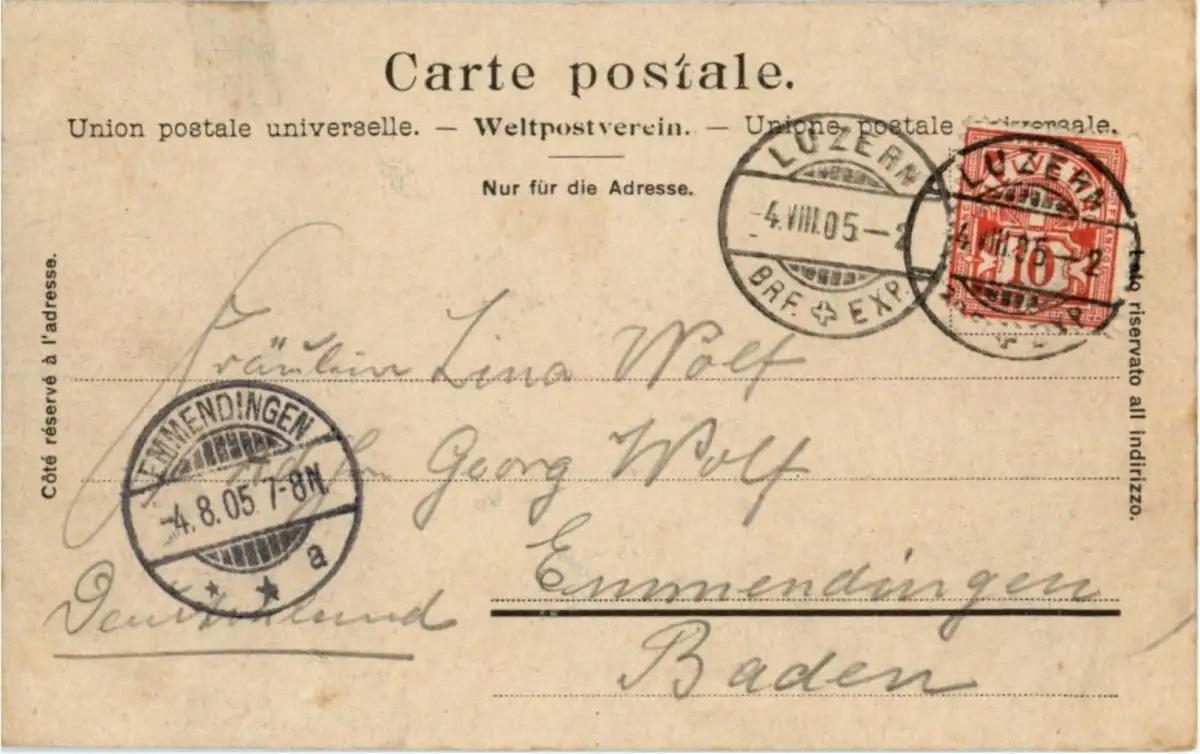 Carte postale.
Union postale universelle. — Weltpostverein. — Unione postale universale.
Nur für die Adresse.
LUZERN
4.VIII.05–2
BRF. EXP.
LUZERN
4.VIII.05–2
10
Côté réservé à l'adresse.
Lato riservato all indirizzo.
Fräulein Lina Wolf
Georg Wolf
EMMENDINGEN
-4.8.05 7-8N.
a
Emmendingen
Deutschland
Baden